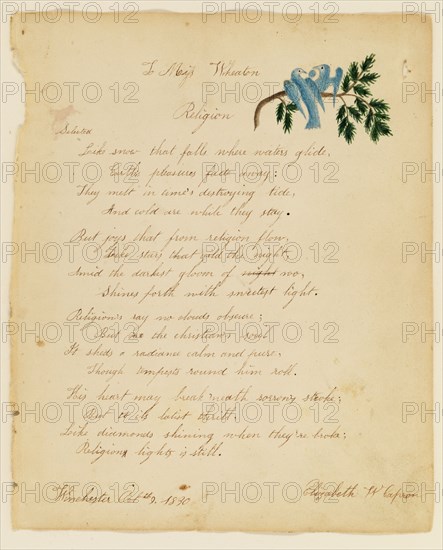 To Miss Wheaton
Religion
Selected
Like snow that falls where waters glide,
Earth's pleasures fade away;
They melt in time's destroying tide,
And cold are while they stay.
But joys that from religion flow,
Like stars that gild the night,
Amid the darkest gloom of wo,
Shines forth with sweetest light.
Religion's ray no clouds obscure;
But the christian's soul
It sheds a radiance calm and pure,
Though tempests round him roll.
His heart may break 'neath sorrow's stroke;
But to its latest
Like diamonds shining when they're broke;
Religion's light is still.
Winchester Oct 1830
Elizabeth W
PHOTO12